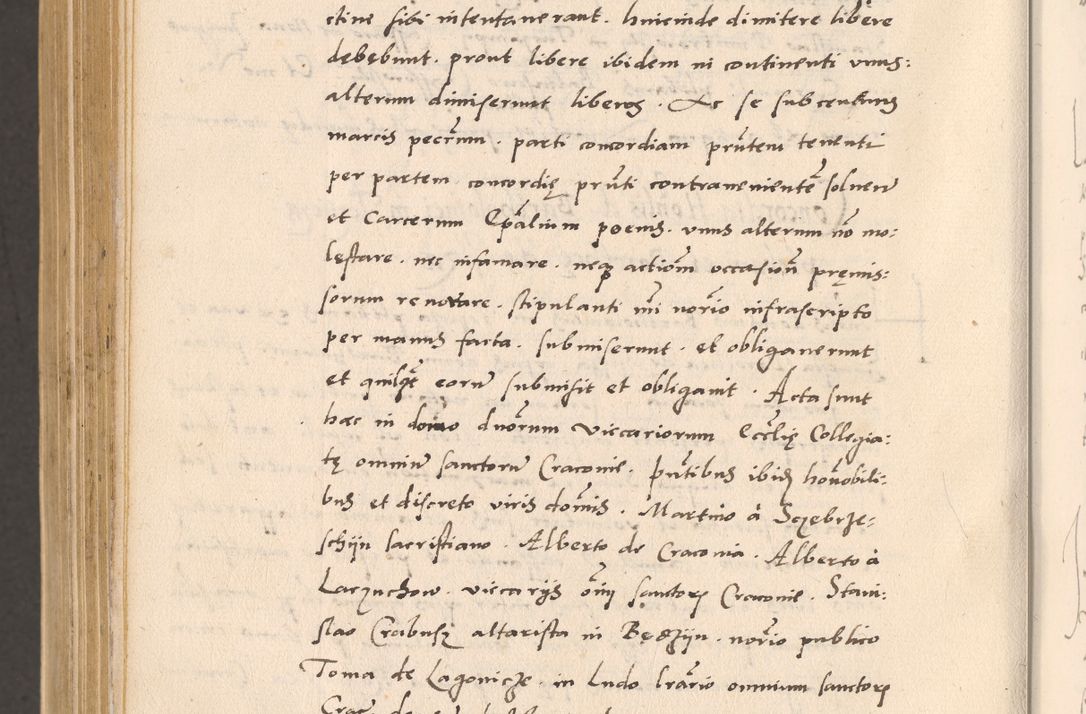 ctine sibi intentaverant. huicinde dimitere libere
debebunt. prout libere ibidem in continenti vnus:
alterum dimiserunt liberos. Ac se sub centum
marcis pecčrum. parti concordiam prñtem tenenti
per partem concordię prñti contravenientē solvend
et Carcerum Epãlium poenis. vnus alterum nõ mo:
lęstare. nec infamare. neqꝫ actiõm occasiõn pręmis:
sorum renovare. stipulanti mi notrio infrascripto
per manus facta. submiserunt. et obligaverunt
et quilqt eorum submisit et obligavit. Acta sunt
hæc in domo duõrum viccariorum Ecclię Collegia:
tę omnium sanctorum Cracovie. prñtibus ibidꝫ honõbili:
bus et discreto viris dõmis. Martino à Sczebrze:
schijn sacristiano. Alberto de Cracovia. Alberto à
Laczuchow. viccarijs õim sanctorꝫ Cracovie. Stani:
slao Crabusz altarista in Będzijn. notrio publico
Toma de Lagonicze. in Ludo lrãrio omnium sanctorꝫ